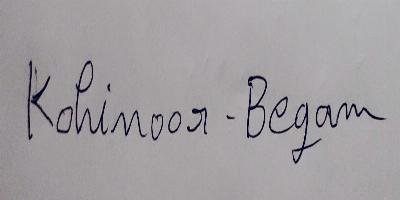 Kohinoor - Begam